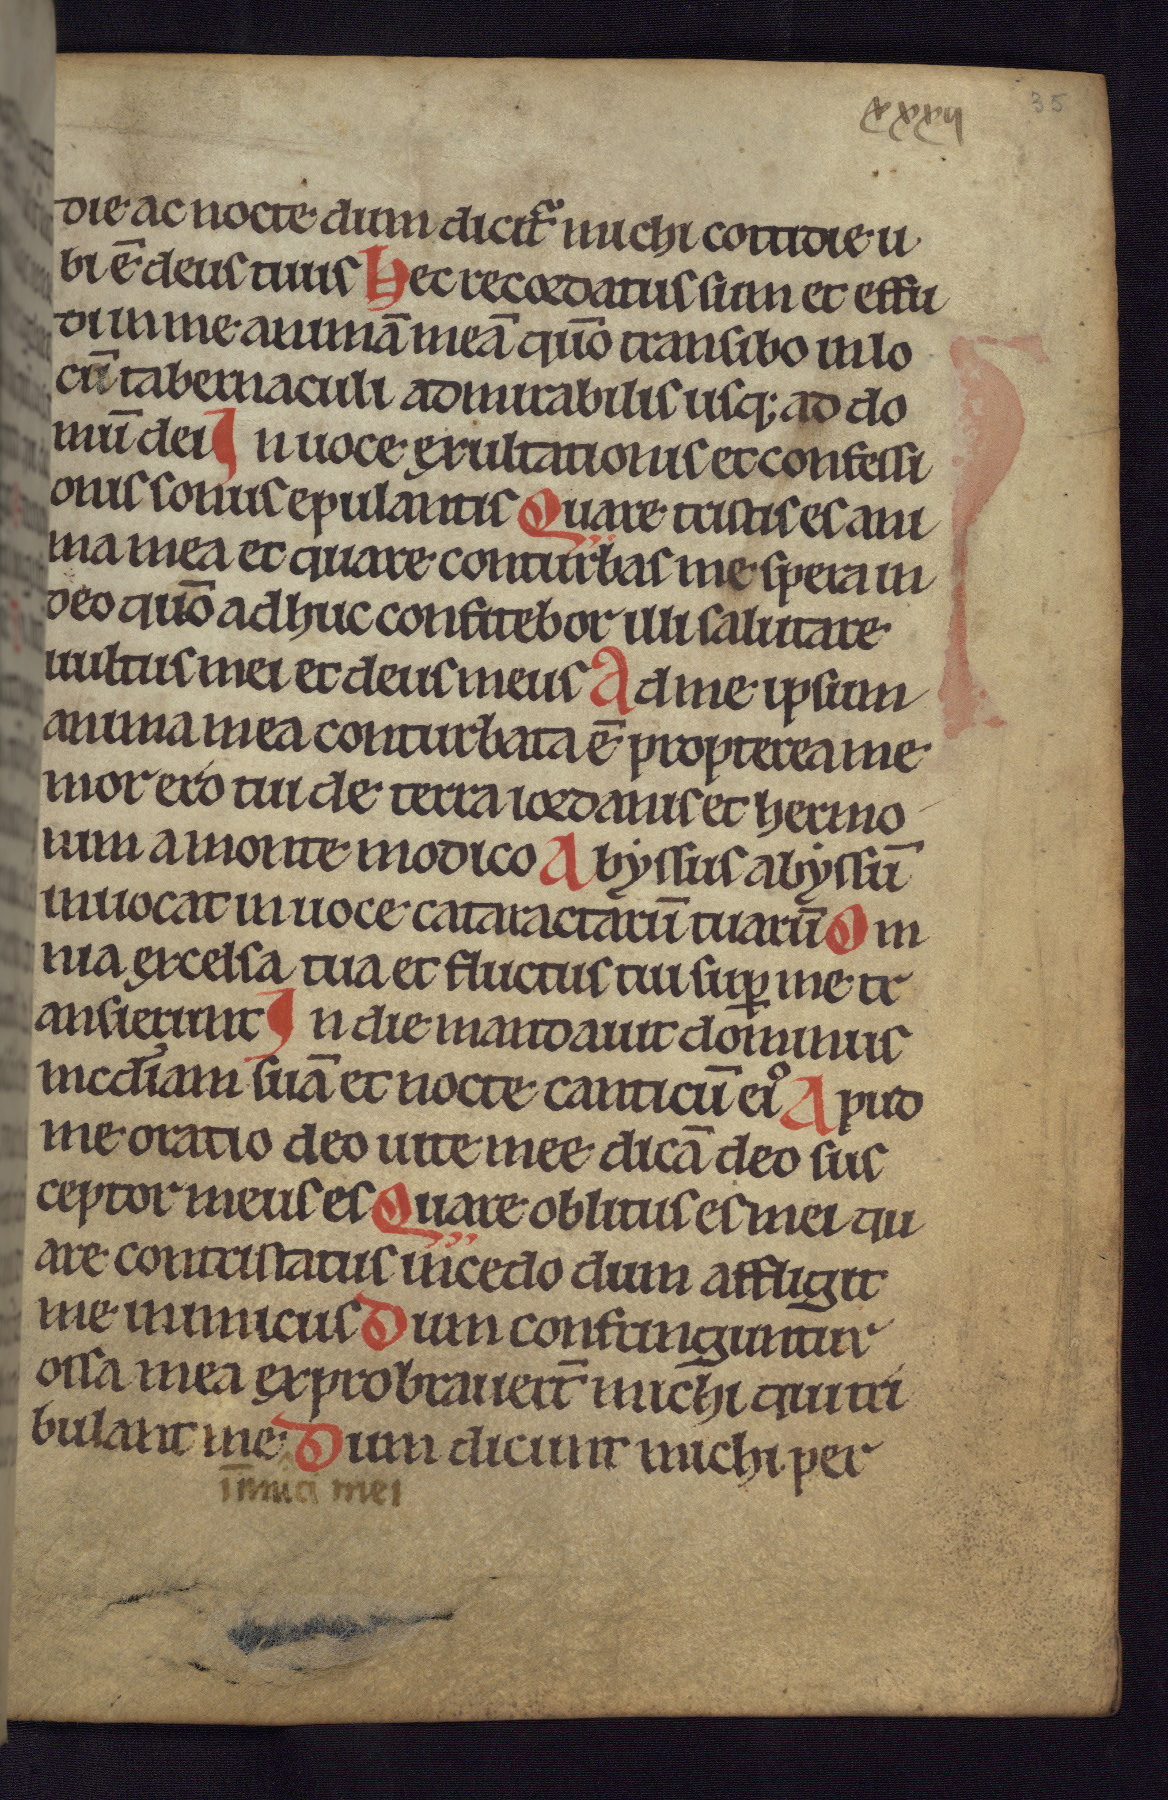 xxxij 35
die ac nocte dum dicit᷑ michi cottidie u
bi ē deus tuus Hec recordatus sum et effu
di in me animā meā qūo transibo in lo
cū tabernaculi admirabilis usq; ad do
mū dei In uoce exultationis et confessi
onis sonus epulantis Quare tristis es ani
ma mea et quare conturbas me spera in
deo qūo adhuc confitebor illi salutare
uultus mei et deus meus Ad me ipsum
anima mea conturbata ē propterea me
mor ero tui de terra iordanis et hermo
nium a monte modico Abyssus abyssū
inuocat in uoce cataractarū tuarū Om
nia excelsa tua et fluctus tui suꝑ me tr
ansierunt In die mandauit dominus
mcdīam suā et nocte canticū eiꝰ Apud
me oratio deo uite mee dicā deo sus
ceptor meus es Quare oblitus es mei qu
are contristatus incedo dum affligit
me inimicus Dum confringuntur
ossa mea exprobrauert̄ michi qui tri
bulant me Dum dicunt michi per
īnmici mei